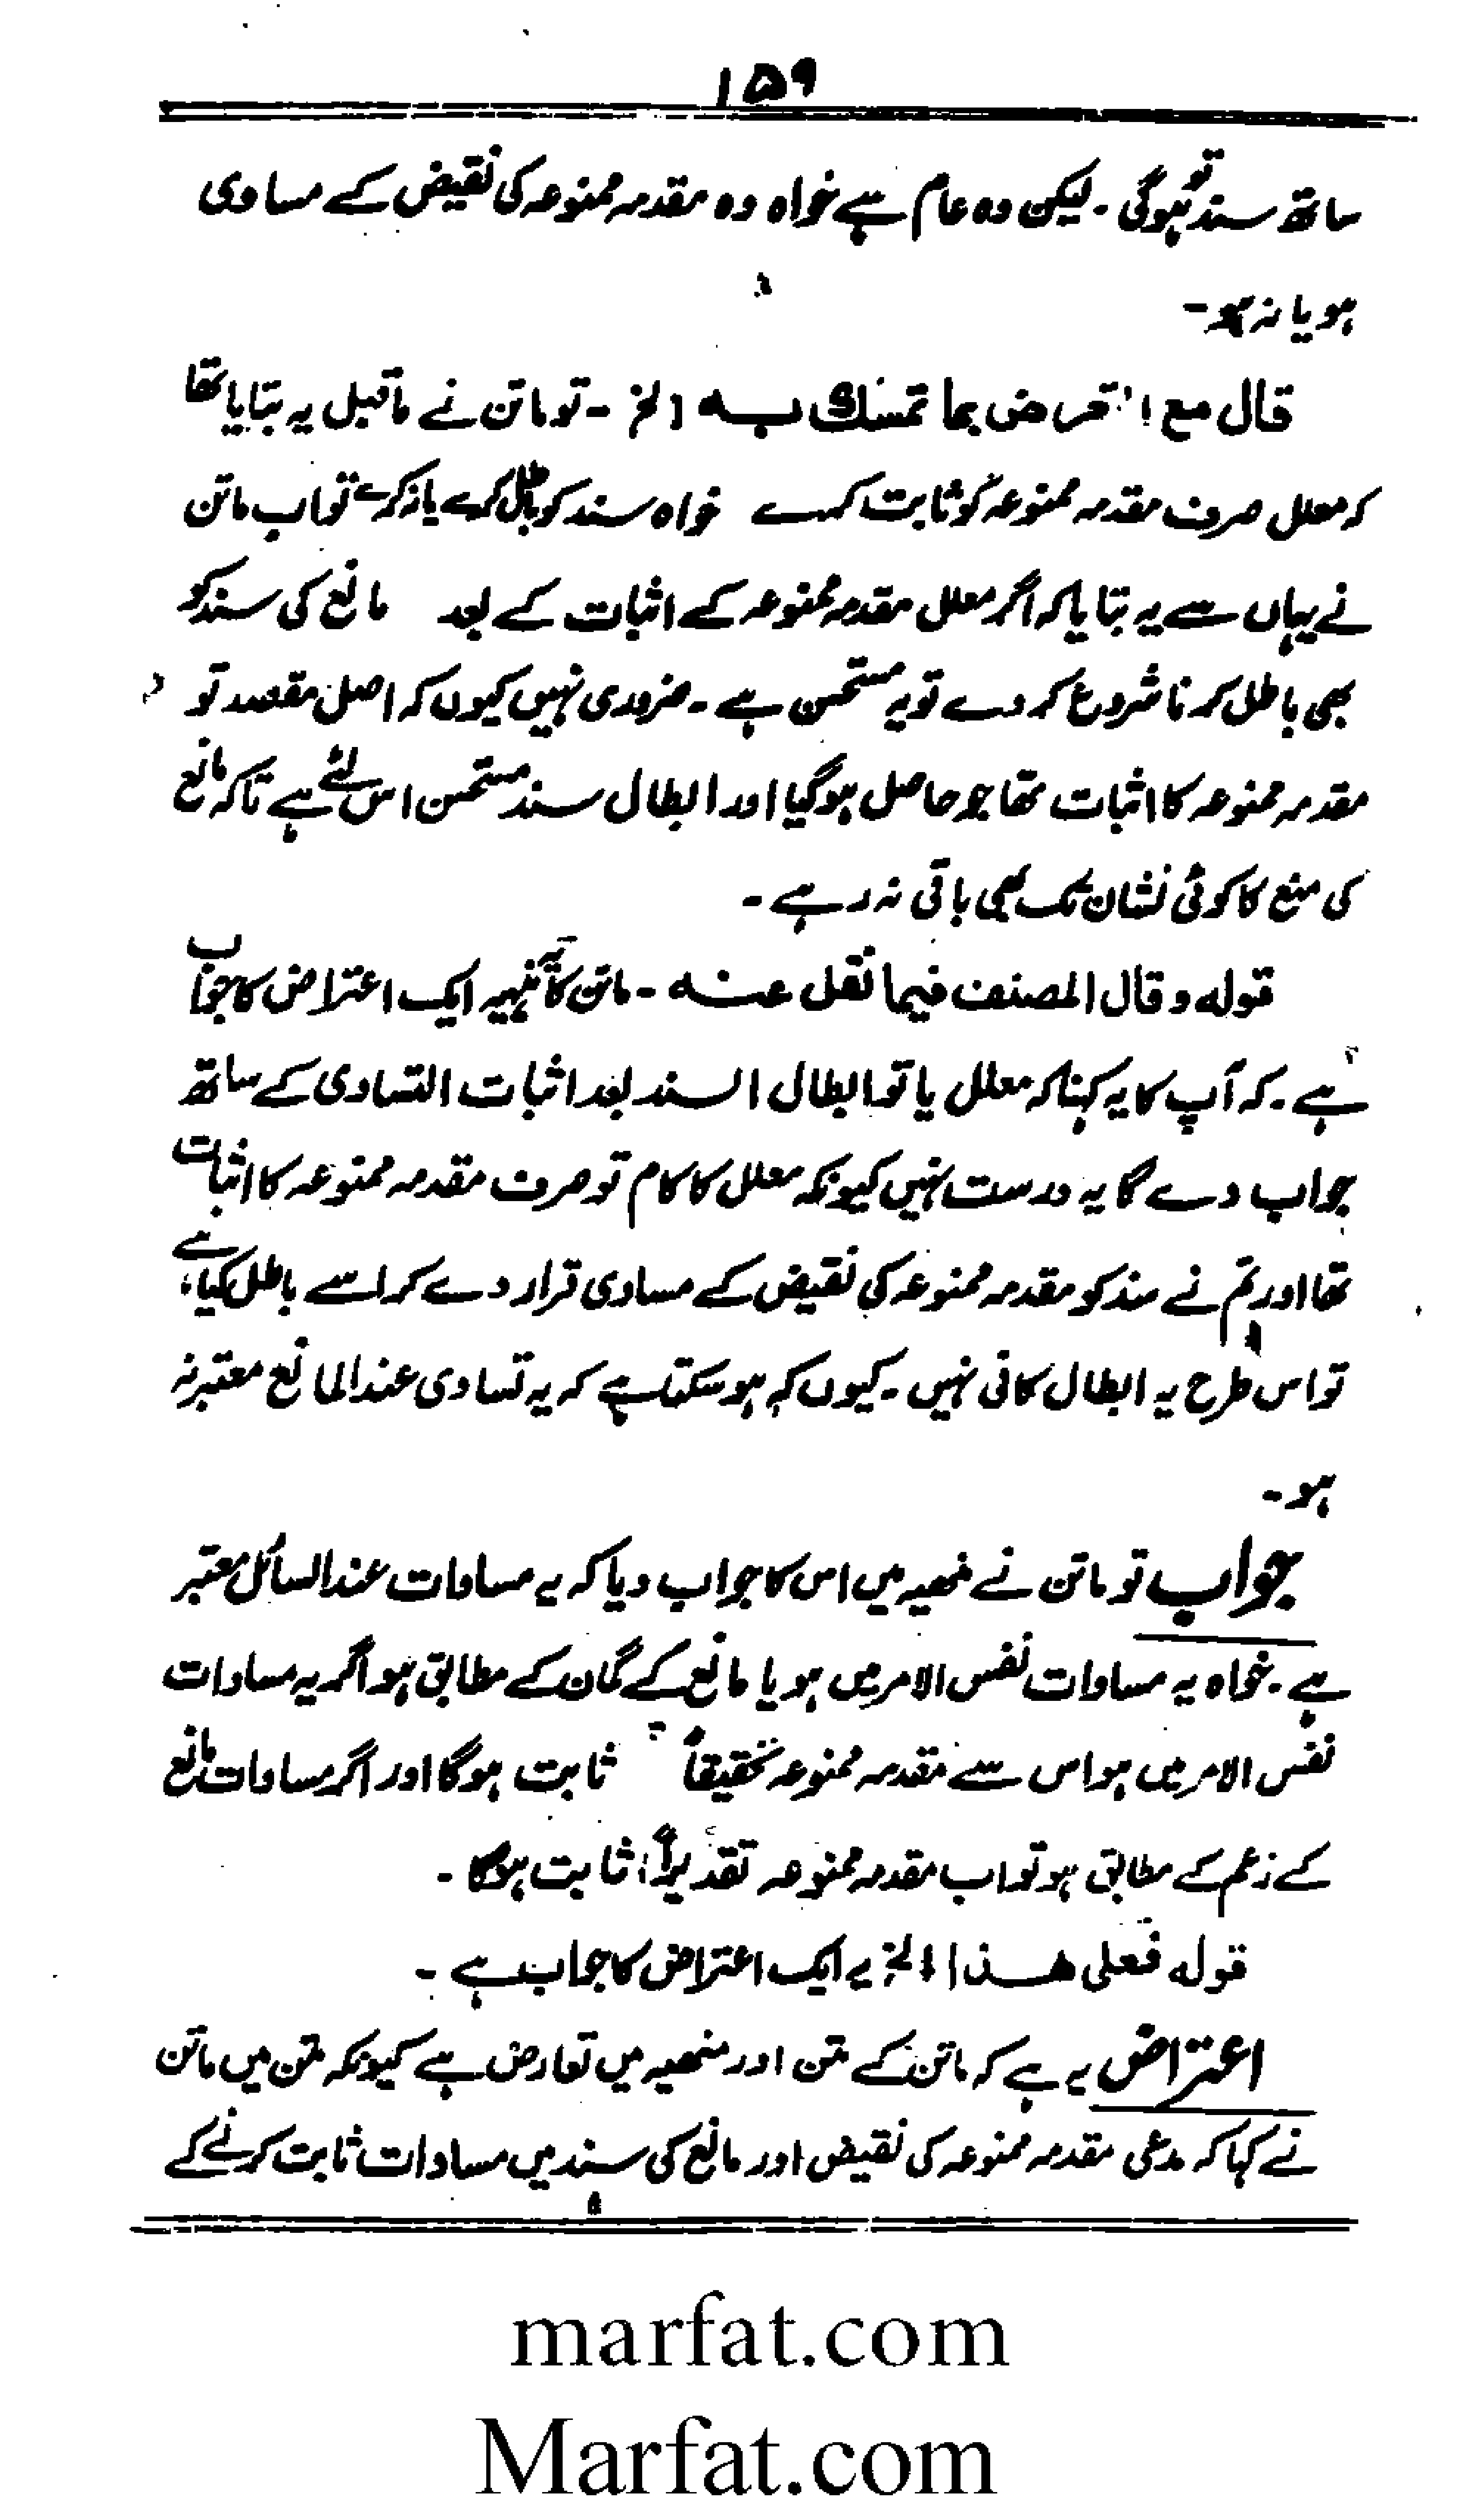 ۱۵۹
ساتھ سند تو ہوگی ۔ لیکن وہ عام ہے خواہ وہ مقدمہ ممنوعہ کی نقیض کے مساوی
ہو یا نہ ہو ۔
قال مع التعرض بما تمسك به الخ ۔ تو ماتن نے ماقبل یہ بتایا تھا
کہ معلل صرف مقدمہ ممنوعہ کو ثابت کرے خواہ سند کو باطل کرے یا نہ کرے تو اب ماتن
نے یہاں سے یہ بتایا کہ اگر معلل مقدمہ ممنوعہ کے اثبات کے بعد مانع کی سند کو
بھی باطل کرنا شروع کر دے تو یہ مستحسن ہے ۔ ضروری نہیں کیوں کہ اصل مقصد تو
مقدمہ ممنوعہ کا اثبات تھا جو حاصل ہوگیا اور ابطال سند مستحسن اس لئے ہے تاکہ مانع
کی منع کا کوئی نشان تک بھی باقی نہ رہے ۔
قوله وقال المصنف فيما نقل عنه ۔ ماتن کا منہیہ ایک اعتراض کا جواب
ہے ۔ کہ آپ کا یہ کہنا کہ معلل یا تو ابطال السند بعد اثبات التساوی کے ساتھ
جواب دے گا یہ درست نہیں کیونکہ معلل کا کام تو صرف مقدمہ ممنوعہ کا اثبات
تھا اور تم نے سند کو مقدمہ ممنوعہ کی نقیض کے مساوی قرار دے کر اسے باطل کیا ہے
تو اس طرح یہ ابطال کافی نہیں ۔ کیوں کہ ہو سکتا ہے کہ یہ تساوی عند المانع معتبر نہ
ہو ۔
جواب تو ماتن نے منھیہ میں اس کا جواب دیا کہ یہ مساوات عند السائل معتبر
ہے ۔ خواہ یہ مساوات نفس الامر میں ہو یا مانع کے گمان کے مطابق ہو اگر یہ مساوات
نفس الامر میں ہو اس سے مقدمہ ممنوعہ تحقیقاً ثابت ہوگا اور اگر مساوات مانع
کے زعم کے مطابق ہو تو اب مقدمہ ممنوعہ تقدیراً ثابت ہوگا ۔
قوله فعلى هذا الخ یہ ایک اعتراض کا جواب ہے ۔
اعتراض یہ ہے کہ ماتن کے متن اور منھیہ میں تعارض ہے کیونکہ متن میں ماتن
نے کہا کہ مدعی مقدمہ ممنوعہ کی نقیض اور مانع کی سند میں مساوات ثابت کرنے کے
marfat.com
Marfat.com